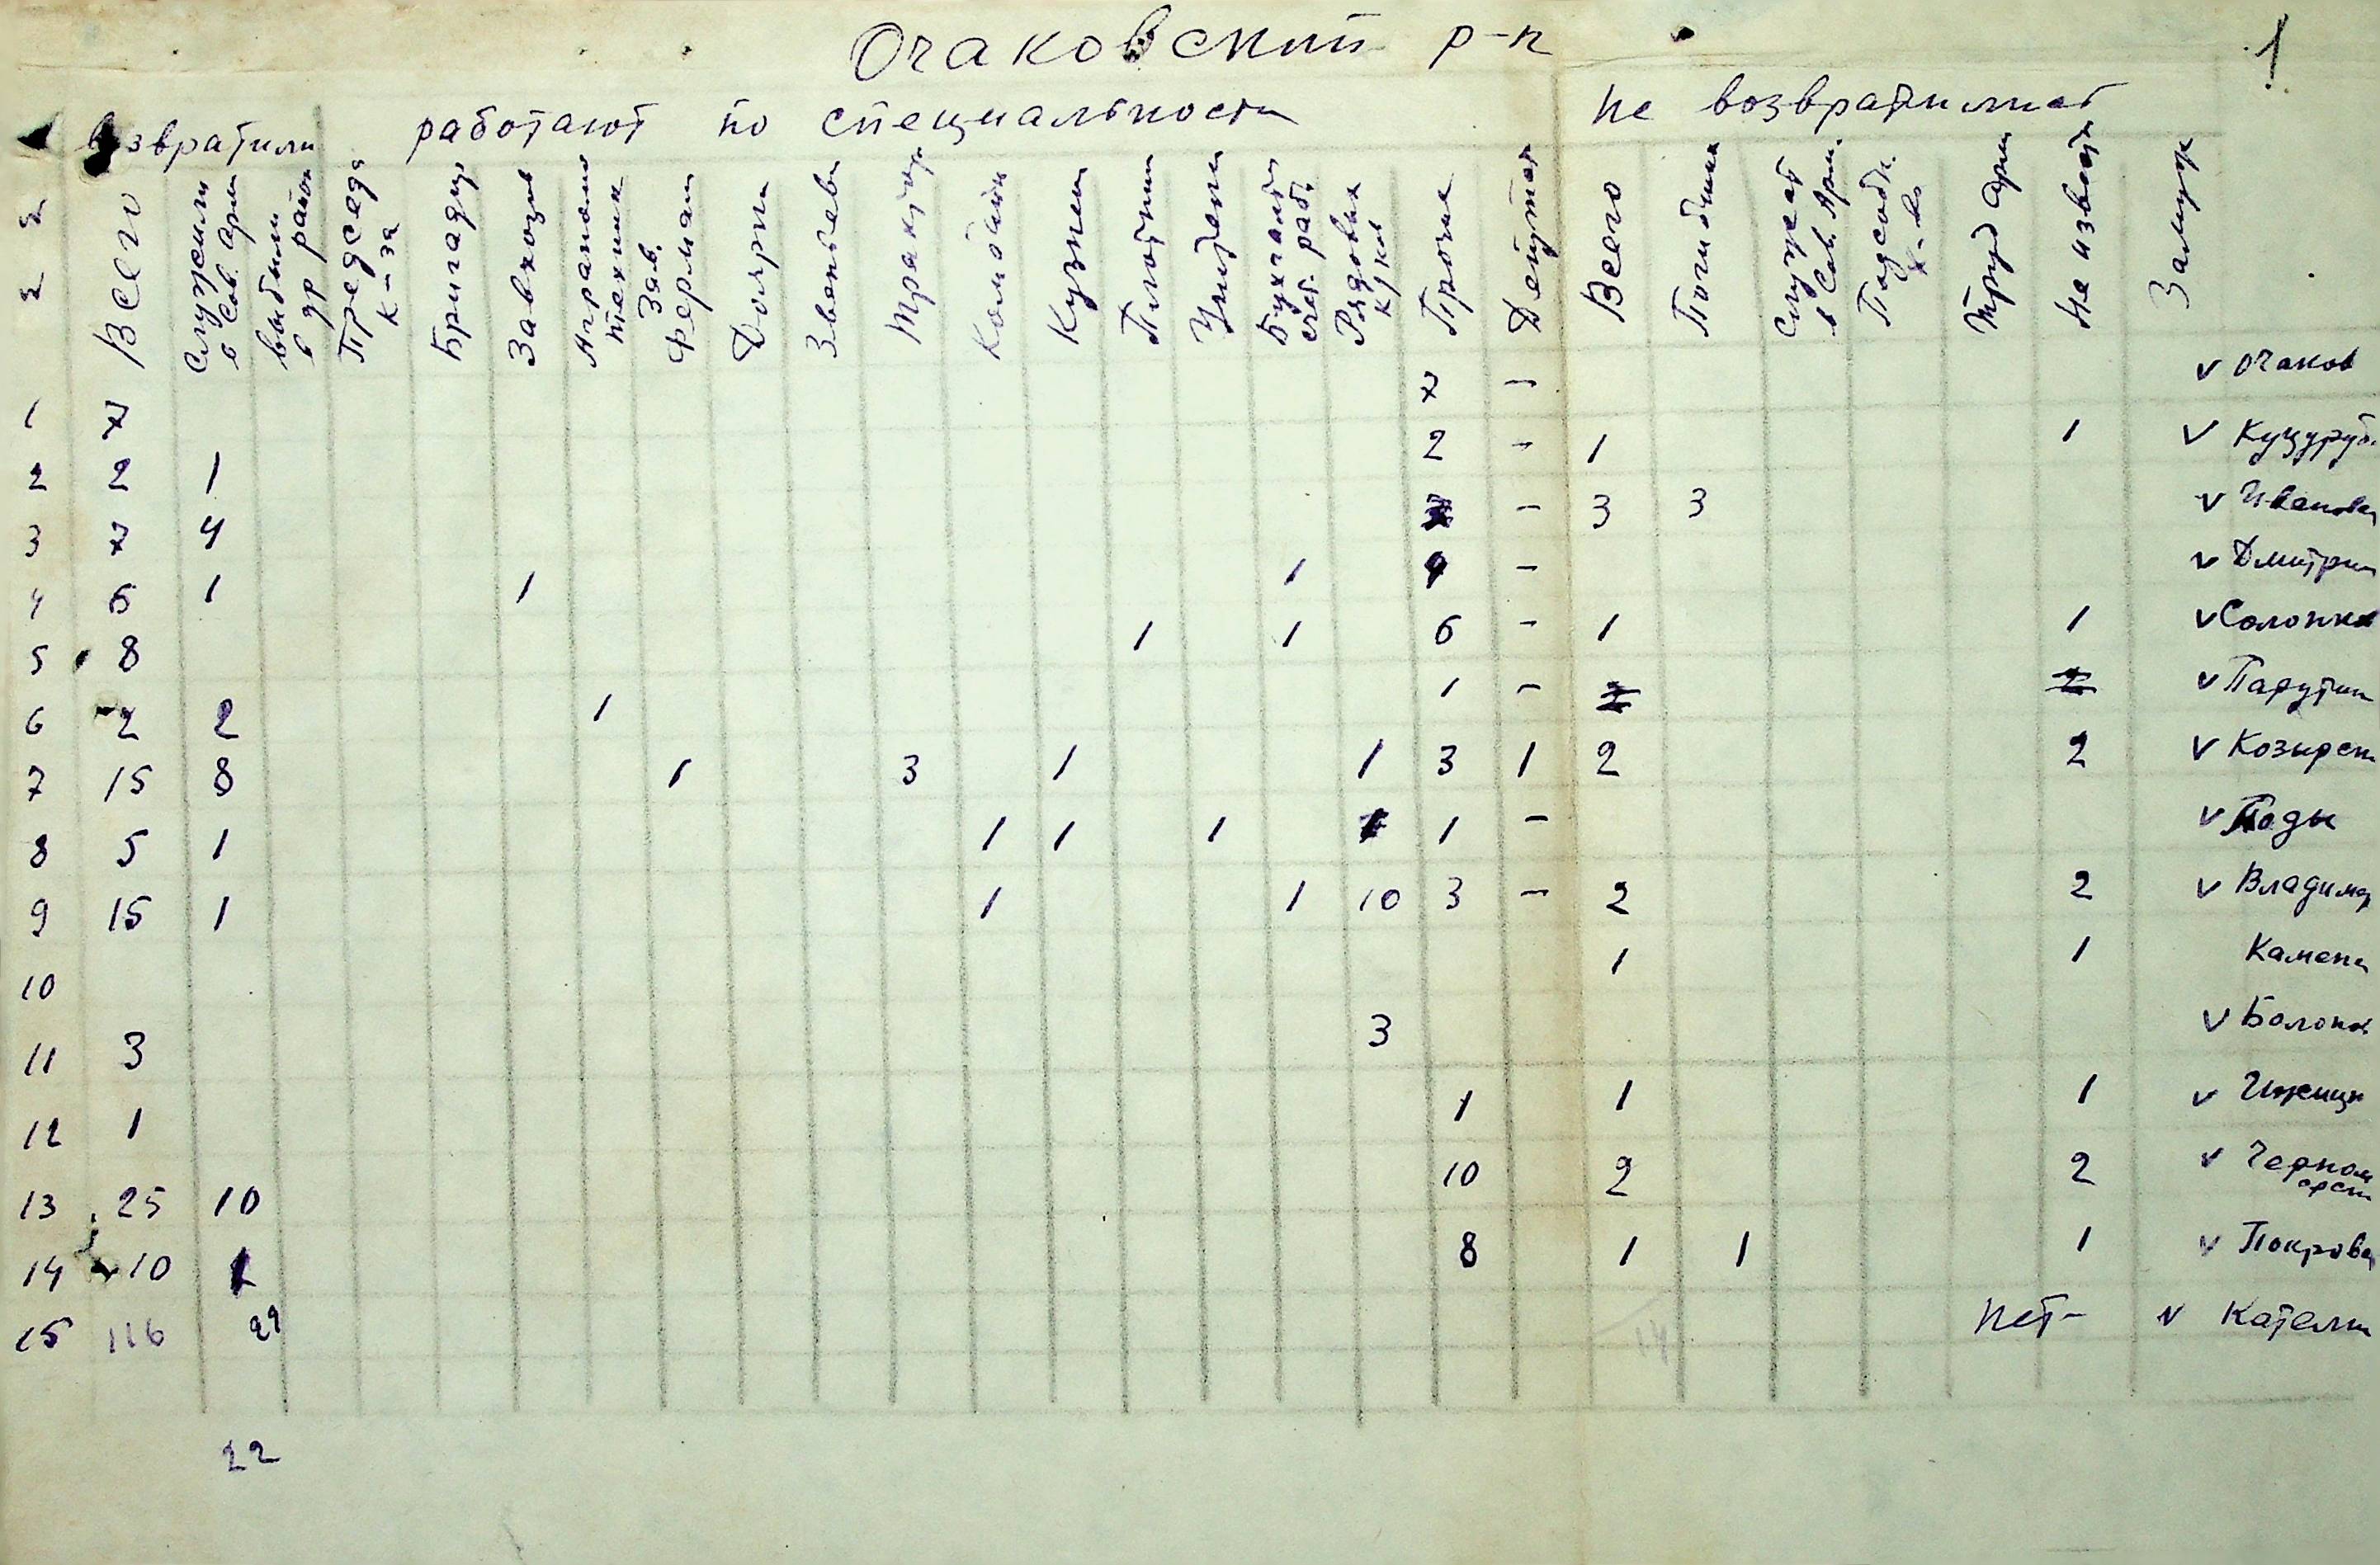 Очаковский р-н
1
возвратили работают по специальности не возвратились
Всего
Служили в Сов. арм
выбыли в др район
Председ к-за
Бригадир
Завхозы
Агрономы техник
Зав. ферман
Доярки
Звеньев
Трактор
Комбайн
Кузнец
Плотник
Учителя
Бухгалт счет. раб.
Рядовых к/ки
Прочие
Депутат
Всего
Погибших
Служат в Сов. Арм.
Подсобн. х-во
Труд арм
Не извест
Замуж
1 7 7 - v Очаков
2 2 1 2 - 1 1 v Куцуруб.
3 7 4 3 - 3 3 v Ивановк
4 6 1 1 1 4 - v Дмитри
5 8 1 1 6 - 1 1 v Солончак
6 2 2 1 1 - 2 2 v Парутин
7 15 8 1 3 1 1 3 1 2 2 v Козырск
8 5 1 1 1 1 1 1 - v Поды
9 15 1 1 1 10 3 - 2 2 v Владимир
10 1 1 Камен
11 3 3 v Болонов
12 1 1 1 1 v Ижицк
13 25 10 10 2 2 v Черноморск
14 10 1 8 1 1 1 v Покровк
15 116 29 14 нет- v Кателин
22